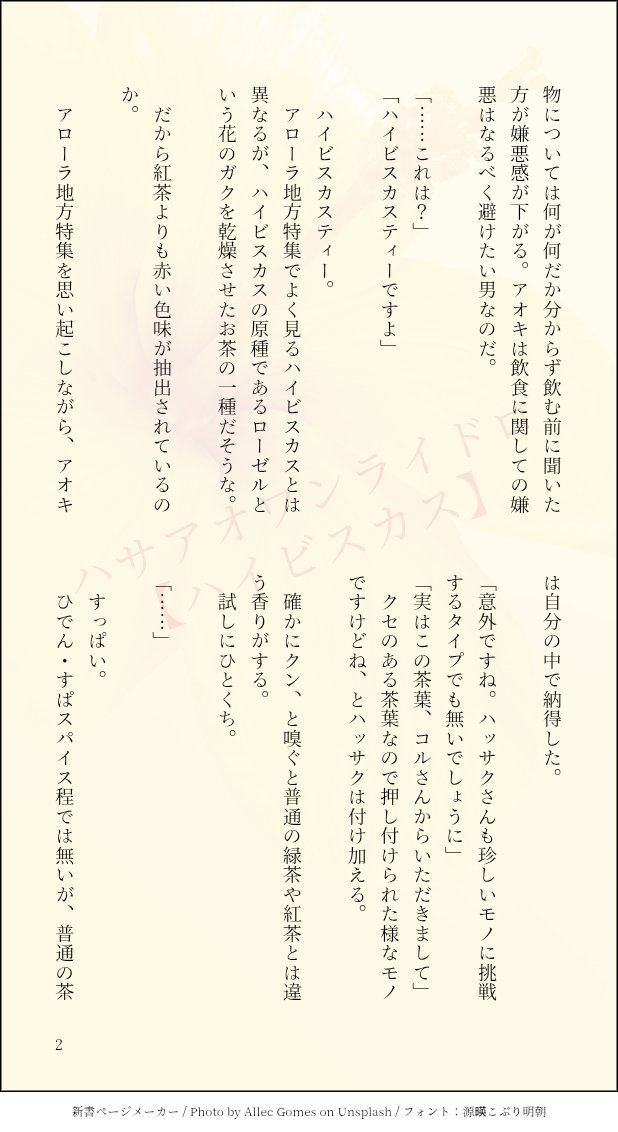 物については何が何だか分からず飲む前に聞いた
方が嫌悪感が下がる。アオキは飲食に関しての嫌
悪はなるべく避けたい男なのだ。
「……これは？」
「ハイビスカスティーですよ」
ハイビスカスティー。
アローラ地方特集でよく見るハイビスカスとは
異なるが、ハイビスカスの原種であるローゼルと
いう花のガクを乾燥させたお茶の一種だそうな。
だから紅茶よりも赤い色味が抽出されているの
か。
アローラ地方特集を思い起こしながら、アオキ
は自分の中で納得した。
「意外ですね。ハッサクさんも珍しいモノに挑戦
するタイプでも無いでしょうに」
「実はこの茶葉、コルさんからいただきまして」
クセのある茶葉なので押し付けられた様なモノ
ですけどね、とハッサクは付け加える。
確かにクン、と嗅ぐと普通の緑茶や紅茶とは違
う香りがする。
試しにひとくち。
「……」
すっぱい。
ひでん・すぱスパイス程では無いが、普通の茶
ハサアオワンライドロ
【ハイビスカス】
2
新書ページメーカー / Photo by Allec Gomes on Unsplash / フォント：源暎こぶり明朝